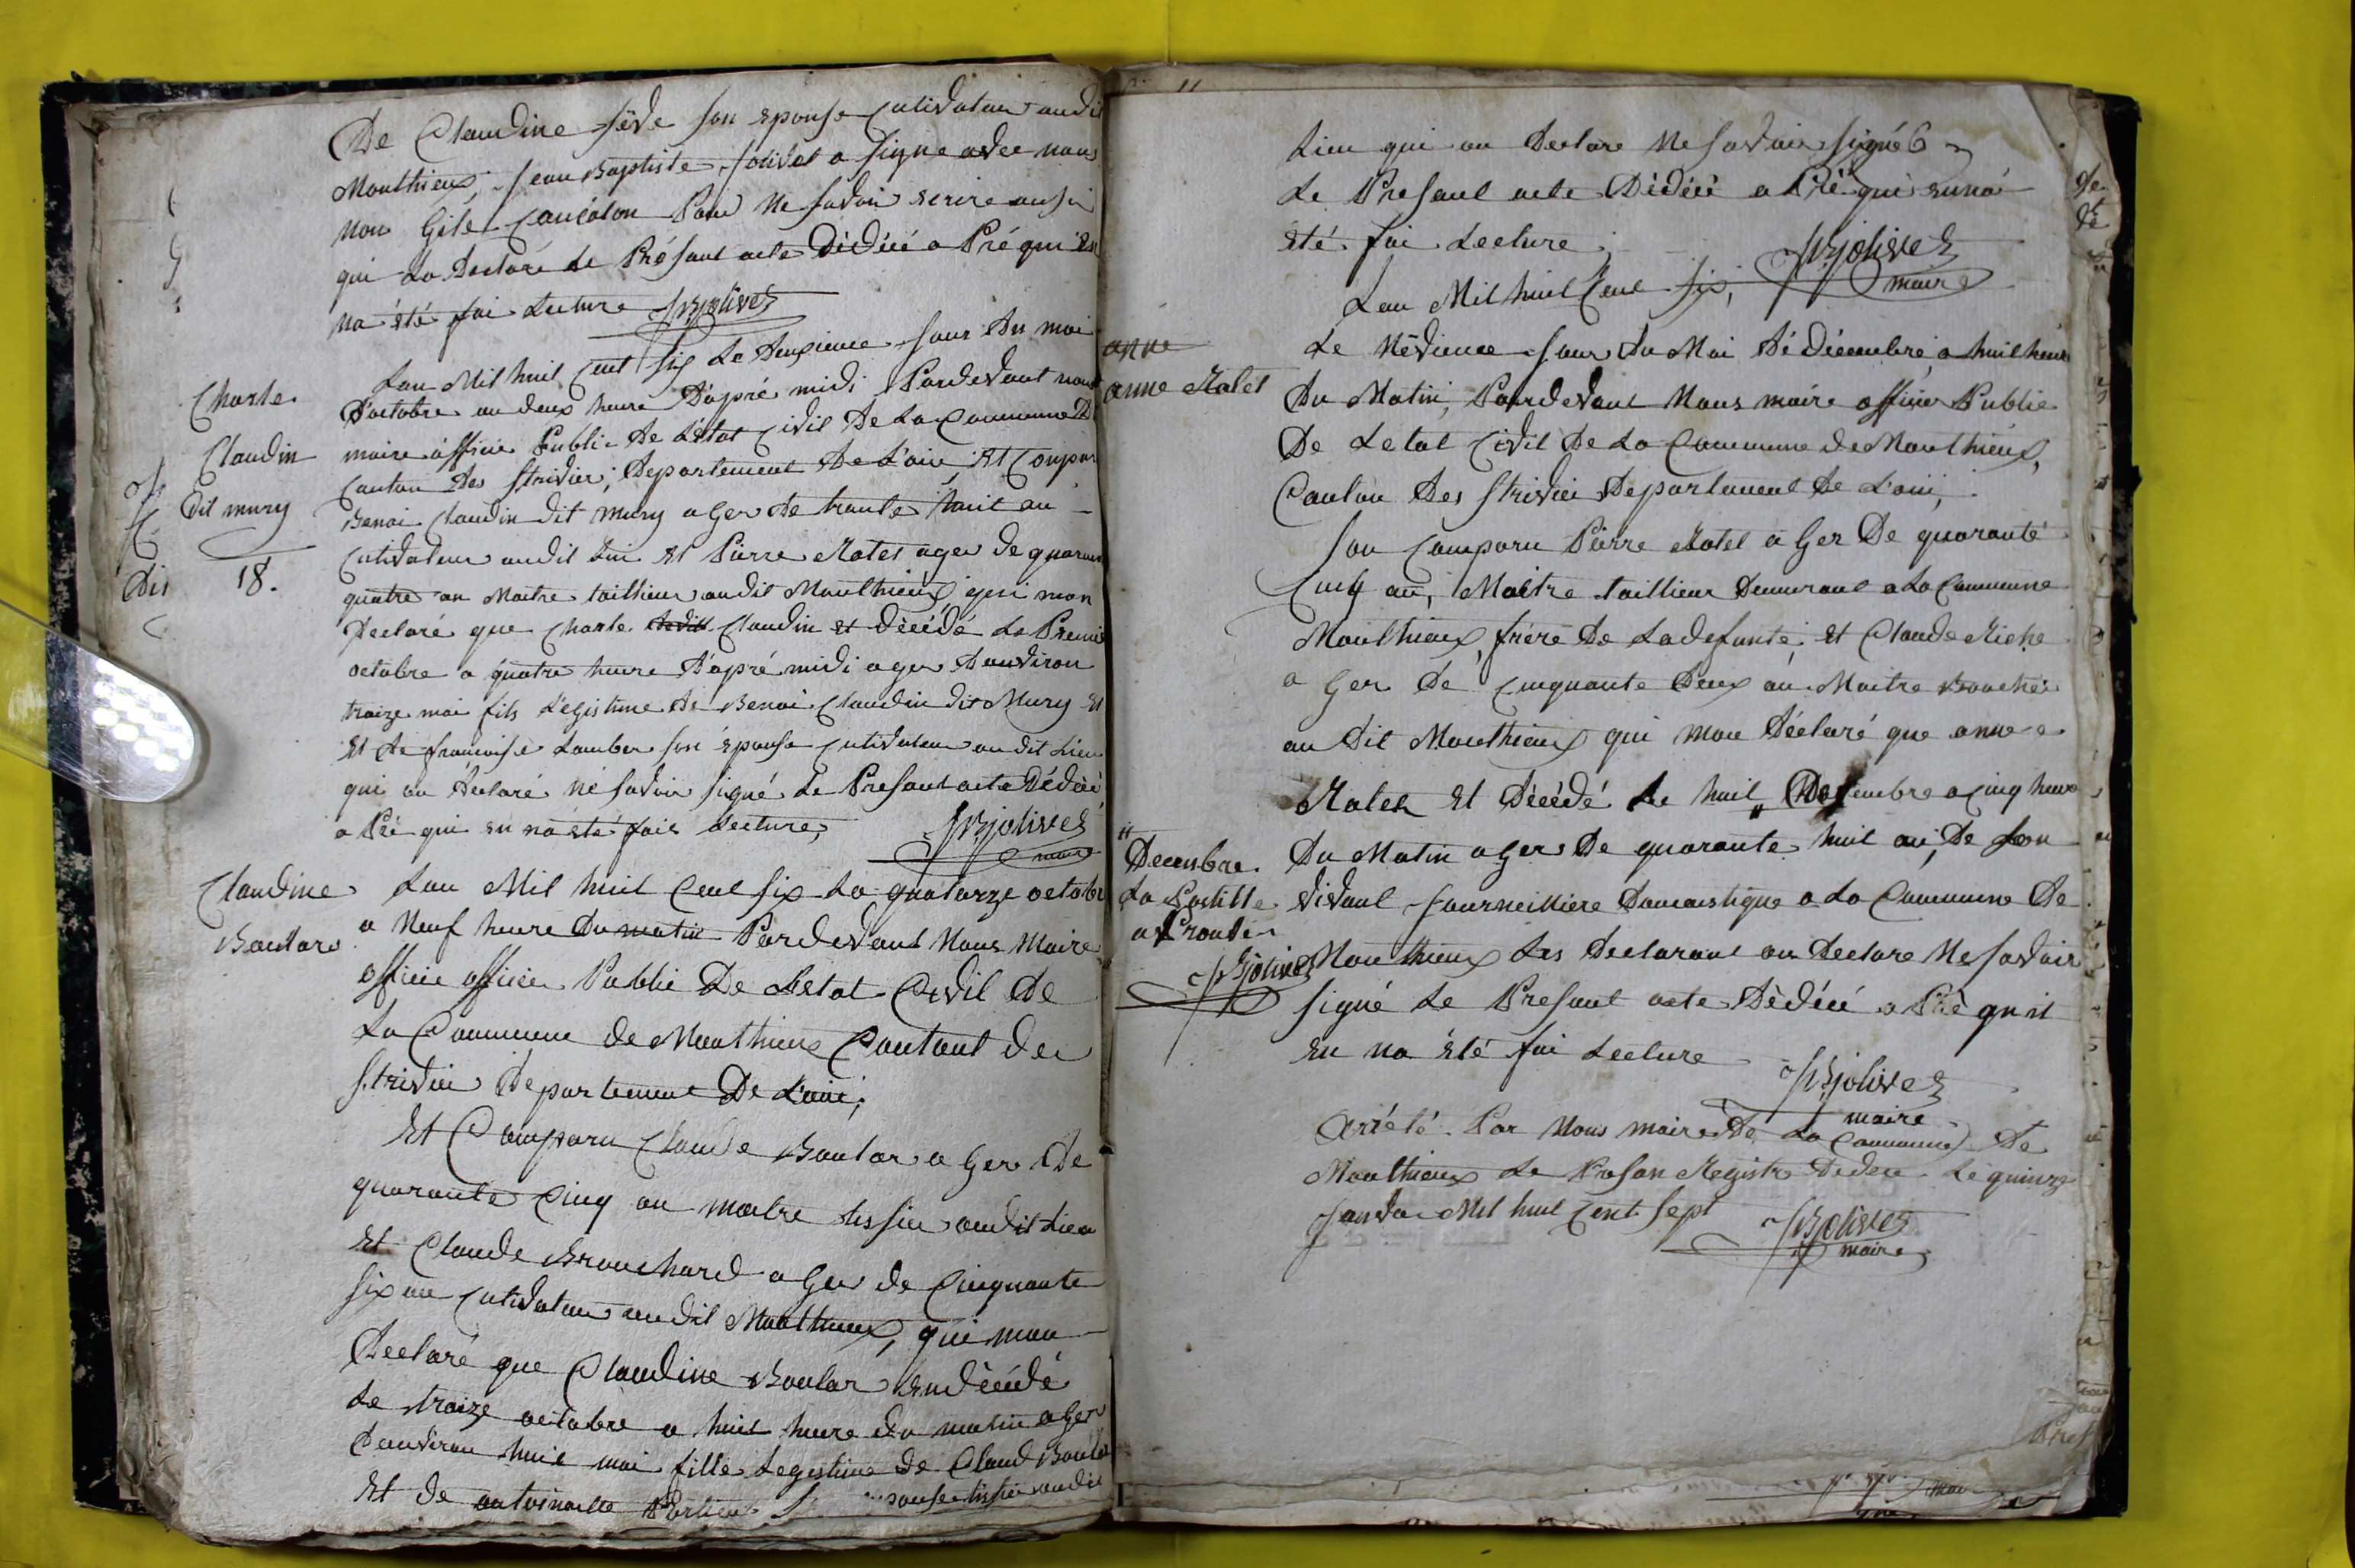 De Claudine séve son epouse Cutivateur audit
Monthieux, Jean Baptiste Jolivet a Signe avec nous
non Gile Cancalon Pour Ne savoir Ecrire ausi
qui La Declaré Le Présant acte Dédiée a Pré qui En
na été fai Lecture JBjolivet
Charle
Claudin
dit mury
18.
Lan Mil huit Cent Six Le deuxieme Jour du moi
d'octobre au deux heure D'apré midi Pardevant nous
maire officie Public De L'état Civil De La Commune D
Canton Des Strivier, Departement De L'ain, Et Compar
Benoi Claudin dit mury a Ger de trante huit an
Cutivateur audit Lui Et Pierre Matel ager de quaran
quatre an Maitre taillieur audit Monthieux qui mon
Declaré que Charle Claudin Et décédé Le Premie
octobre a quatre heure D'apré midi a ger D'anviron
traize moi fils Legistime de Benoi Claudin dit Mury Et
Et de françoise Lamber son épouse Cutivateur au dit Lieu
qui on déclaré né savoir signé Le Presant acte Dédiéé
a Pré qui en na été faie Lecture, JBjolivet
maire
Claudine
Boular
Lan Mil huit Cent Six La quatorze octobre
a Neuf heure Du matin Pardevant Nous Maire
officie officie Public De Letat Civil De
La Commune de Monthieux Contant de
Strivier Departement De L'ain,
Et Comparu Claude Boular a Ger De
quarante Cinq an maitre tissier audit Lieu
Et Claude Brouchard a Ger de Cinquante
six an Cutivateur audit Monthieux, qui mon
Declaré que Claudine Boular en décédé
Le traize octobre a huit heure du matin a Ger
D'anviron huit moi fille Legistime de Claud Boula
Et de antoinaite tissier audit
Lieu qui on Declare Ne savoir signé
Le Presant acte Dédiéé a Pré qui en na
été fai Lecture, JBjolivet
maire
Lan Mil huit Cent Six,
anne
anne Matel
Le Névieme Jour du Moi dé décembre a huit heure
Du Matin, Pardevant Nous maire officier Public
De Letat Civil De La Commune de Monthieux,
Canton Des Strivier Departement De L'ain,
Son Comparu Pierre Matel a Ger De quarante
Cinq an, Maitre taillieur Demurant a La Commune
Monthieux, frére De Ladefunte, Et Claude Miche
a Ger De Cinquante Deux an Maitre Bouché
au dit Monthieux qui mon déclaré que anne
Matel Et décédé Le huit Desembre a Cinq heure
Du Matin a Ger De quarante huit an, De Son
Decembre
La Postille
aprouver
JBjolivet
vivant Journeilliere Domaistique a La Commune De
Monthieux Les Declarant on Declare Ne savoir
signé Le Presant acte dédiéé a Pré qu il
en na été fai Lecture JBjolivet
maire
Arrété Par Nous maire De La Commune De
Monthieux Le Presan Registre Dedeu Le quinze
Janvie Mil huit Cent Sept JBjolivet
maire